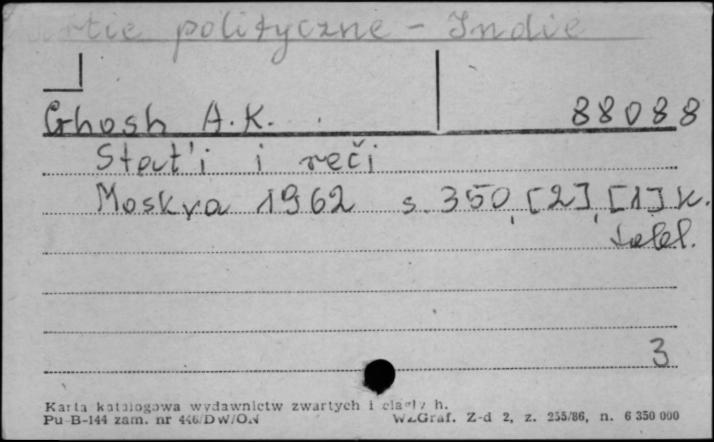 Partie polityczne - Indie
Ghosh A.K. 88088
Stat'i i reči
Moskva 1962 s. 350, [2], [1] k.
tabl.
3
Karta katalogowa wydawnictw zwartych i ciągłych.
Pu-B-144 zam. nr 446/DW/ON WZGraf. Z-d 2, z. 255/86, n. 6 350 000